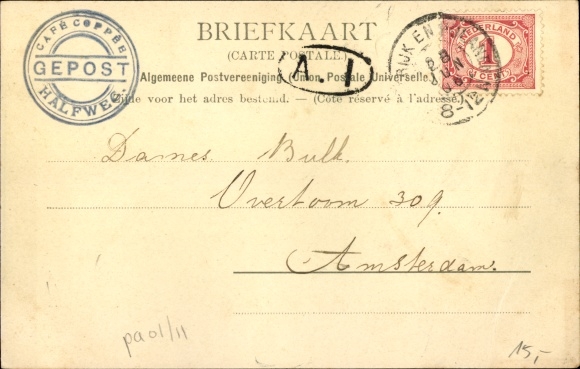 CAFÉ COPPÉE
GEPOST
HALFWEG.
BRIEFKAART
(CARTE POSTALE)
Algemeene Postvereeniging (Union Postale Universelle)
Zijde voor het adres bestemd. — (Côté réservé à l'adresse.)
A 1
RIJK EN
JUN
8-12
NEDERLAND
1
CENT
Dames Bulk.
Overtoom 309.
Amsterdam.
pa01/11
15,-